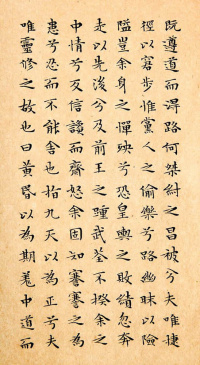 既遵道而得路何桀紂之昌被兮夫唯捷
徑以窘步惟黨人之偷樂兮路幽昧以險
隘豈余身之憚殃兮恐皇輿之敗績忽奔
走以先後兮及前王之踵武荃不揆余之
中情兮反信讒而齊怒余固知謇謇之為
患兮忍而不能舍也指九天以為正兮夫
唯靈修之故也曰黃昏以為期羌中道而